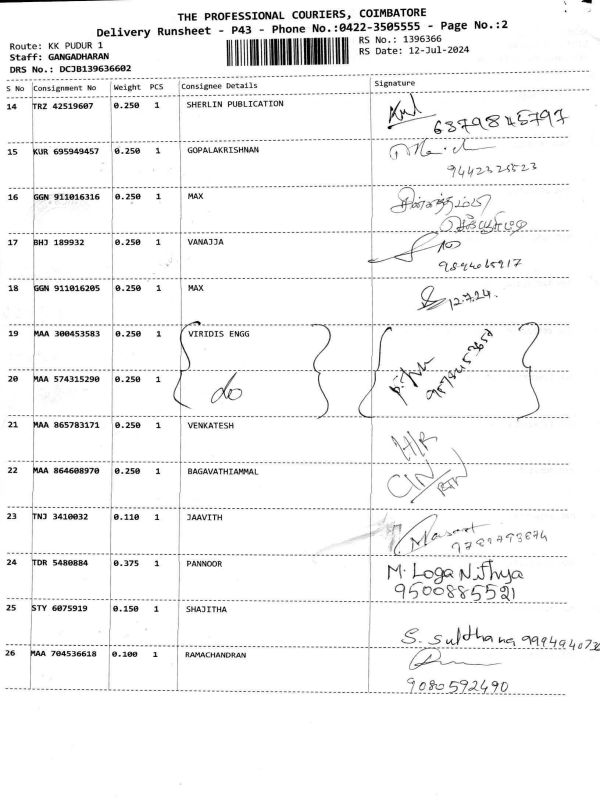 THE PROFESSIONAL COURIERS, COIMBATORE
Delivery Runsheet - P43 - Phone No.:0422-3505555 - Page No.:2
Route: KK PUDUR 1
RS No.: 1396366
Staff: GANGADHARAN
RS Date: 12-Jul-2024
DRS No.: DCJB139636602
S No Consignment No Weight PCS Consignee Details Signature
14 TRZ 42519607 0.250 1 SHERLIN PUBLICATION
6379845797
15 KUR 695949457 0.250 1 GOPALAKRISHNAN
9442325523
16 GGN 911016316 0.250 1 MAX
17 BHJ 189932 0.250 1 VANAJJA
9894065917
18 GGN 911016205 0.250 1 MAX
12.7.24.
19 MAA 300453583 0.250 1 VIRIDIS ENGG
20 MAA 574315290 0.250 1 do
21 MAA 865783171 0.250 1 VENKATESH
H/R
22 MAA 864608970 0.250 1 BAGAVATHIAMMAL
CIN/RTN
23 TNJ 3410032 0.110 1 JAAVITH
24 TDR 5480884 0.375 1 PANNOOR M. Loga Nithya
9500885521
25 STY 6075919 0.150 1 SHAJITHA
S. Sulthana
26 MAA 704536618 0.100 1 RAMACHANDRAN
9080592490